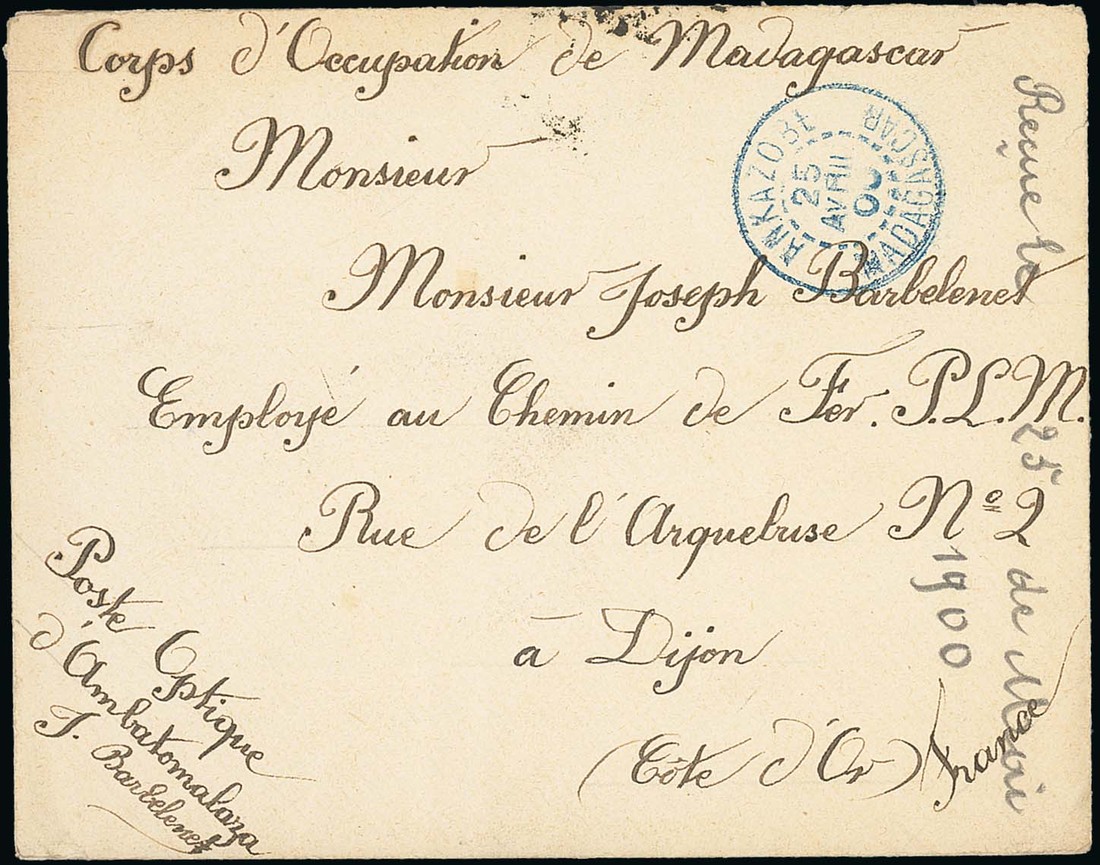 Corps d'Occupation de Madagascar
Monsieur
Monsieur Joseph Barbelenet
Employé au Chemin de Fer. P.L.M.
Rue de l'Arquebuse Nº 2
à Dijon
(Côte d'Or) France
Poste Optique
d'Ambatomalaza
J. Barbelenet
ANKAZOBE
25
AVRIL
00
MADAGASCAR
Reçue le 25 de Mai
1900